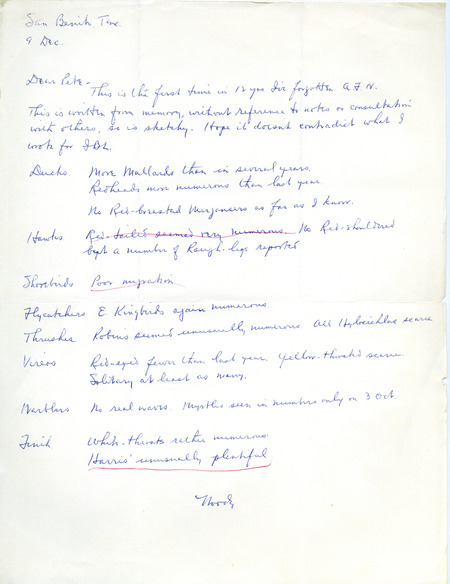 San Benito, Tex.
9 Dec.
Dear Pete -
This is the first time in 12 yrs I've forgotten A F N.
This is written from memory, without reference to notes or consultation
with others, so is sketchy. Hope it doesn't contradict what I
wrote for
Ducks More Mallards than in several years.
Redheads more numerous than last year.
No Red-breasted Mergansers as far as I know.
Hawks Red-tailed seemed very numerous. No Red-shouldered
but a number of Rough-legs reported
Shorebirds Poor migration
Flycatchers E. Kingbirds again numerous
Thrushes Robins seemed unusually numerous All Hylocichlae scarce
Vireos Red-eyed fewer than last year, Yellow-throated scarce.
Solitary at least as many.
Warblers No real waves. Myrtles seen in numbers only on 3 Oct.
Finch White-throats rather numerous
Harris' unusually plentiful
Woody